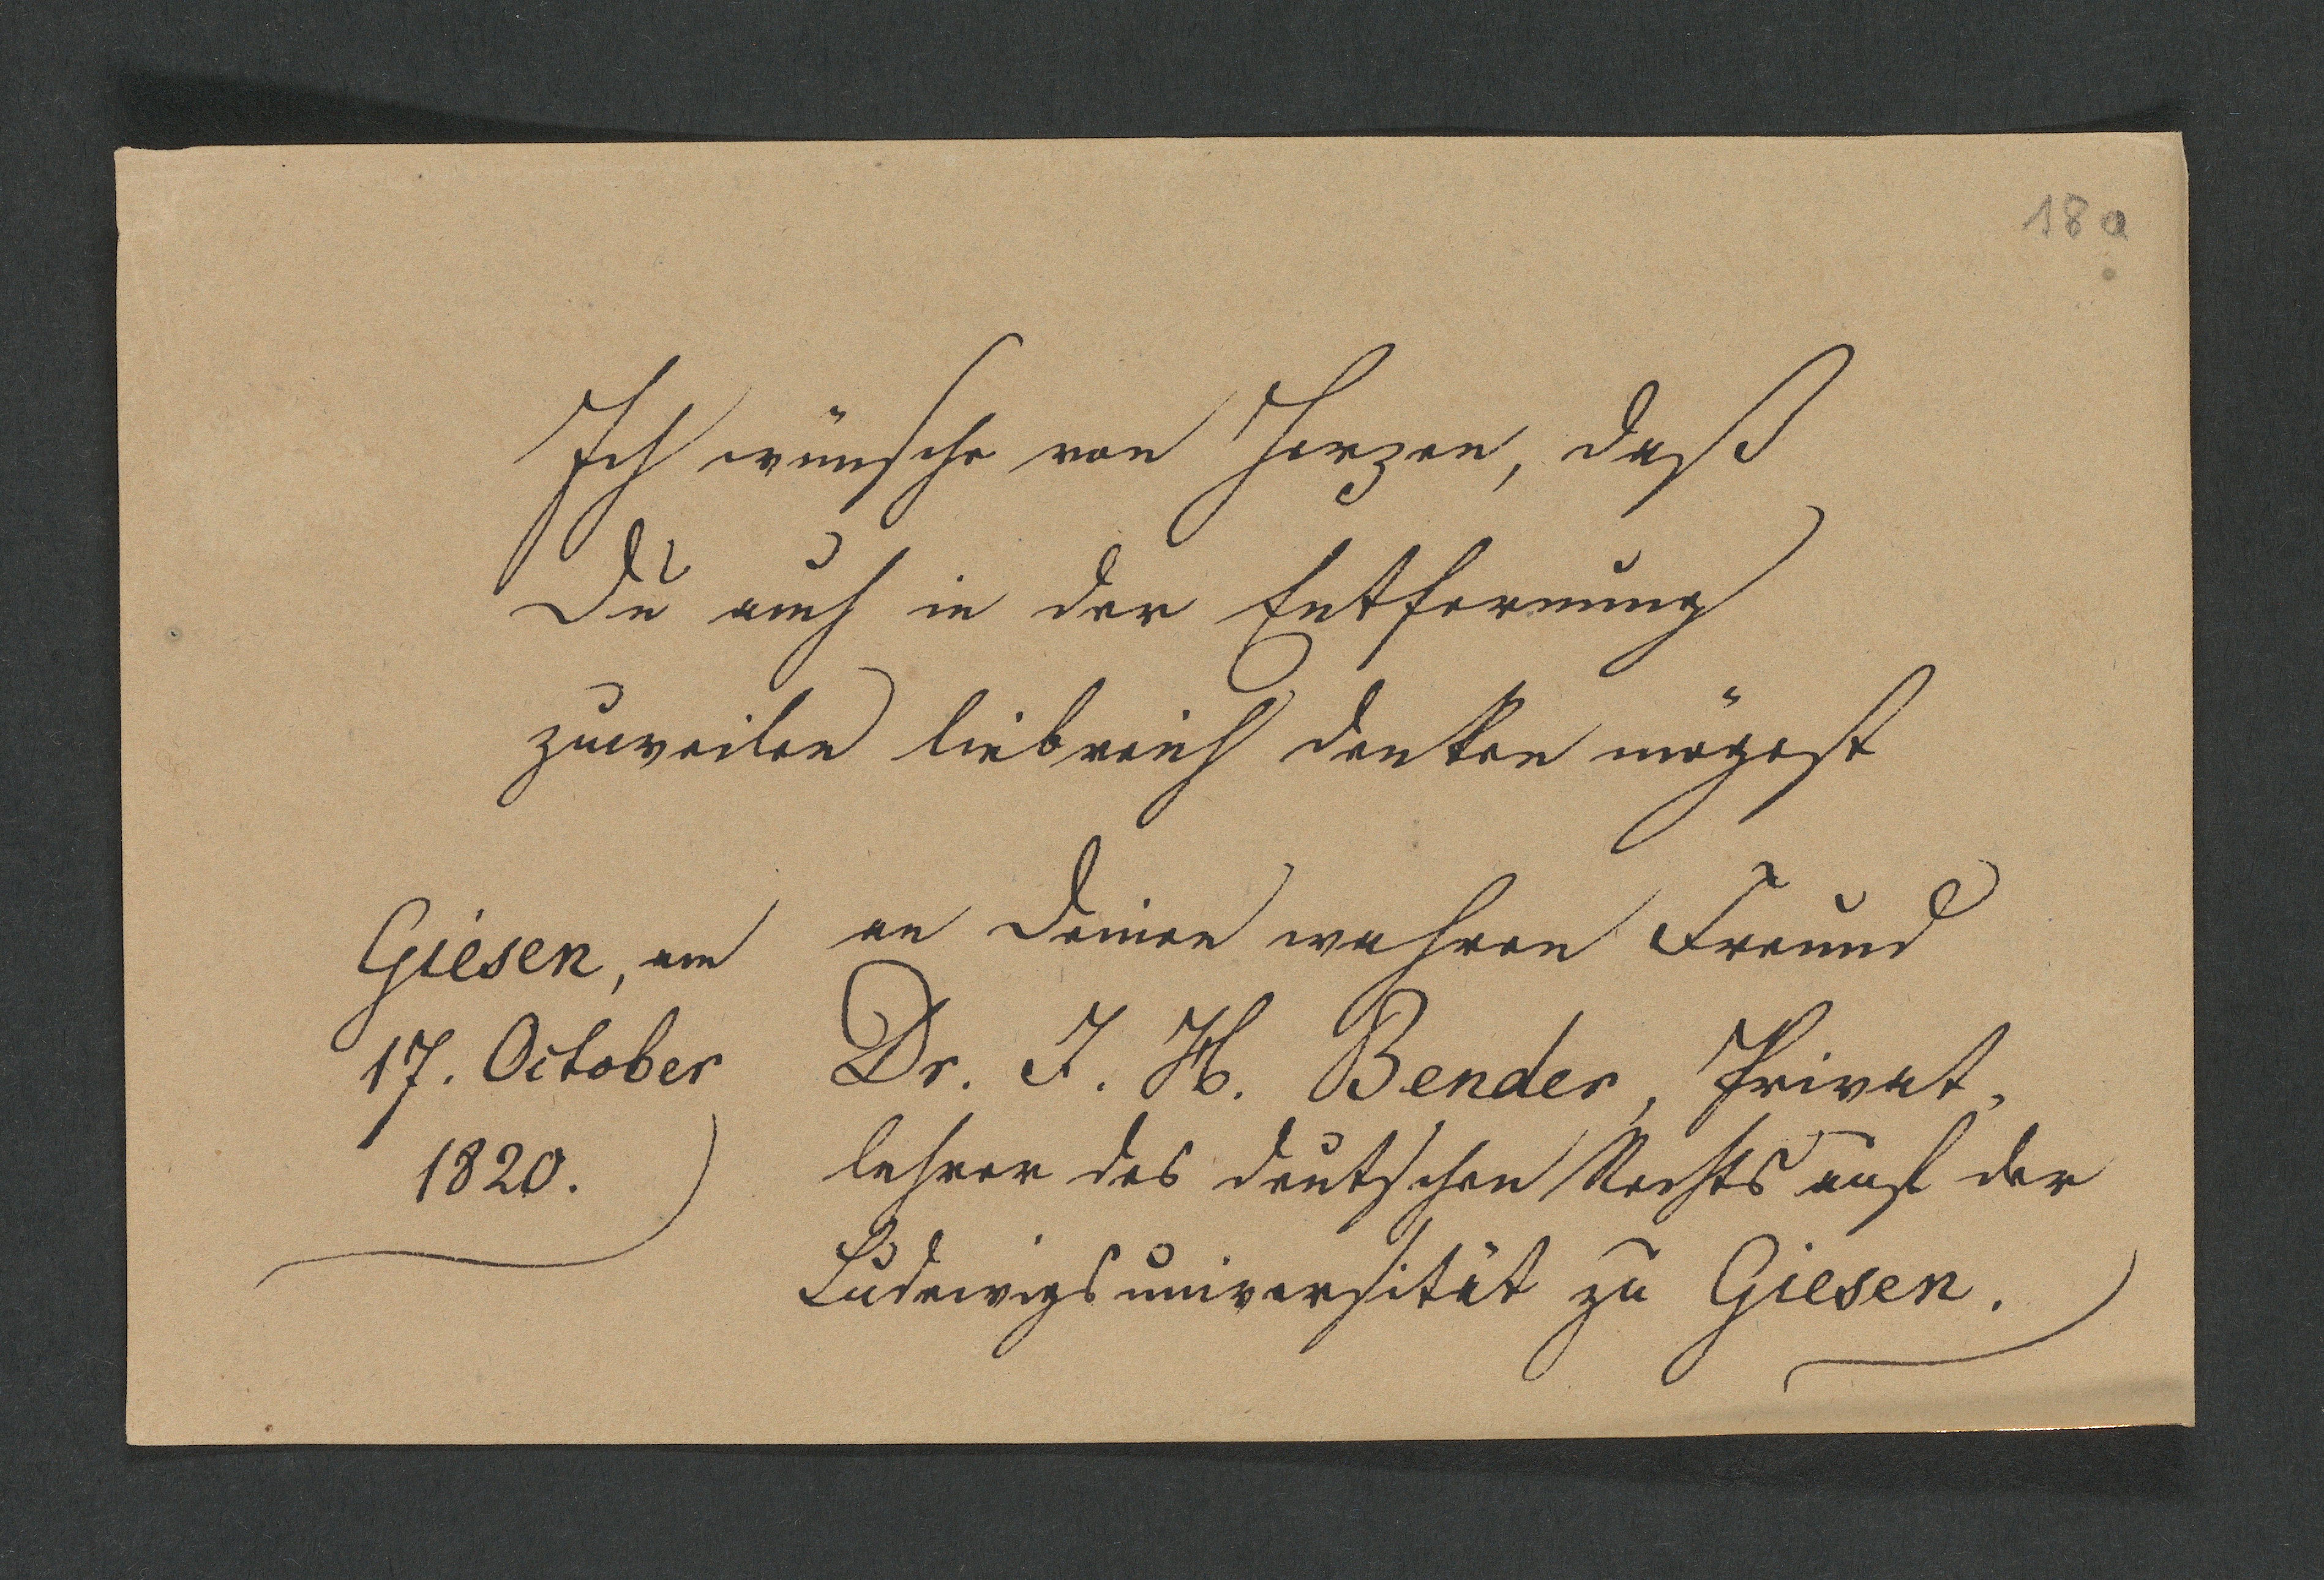 18a
Ich wünsche von Herzen, daß
Du auch in der Entfernung
zuweilen liebreich denken mögest
an Deinen wahren Freund
Dr. J. H. Bender, Privat-
lehrer des deutschen Rechts auf der
Ludewigsuniversität zu Giesen.
Giesen, am
17. October
1820.